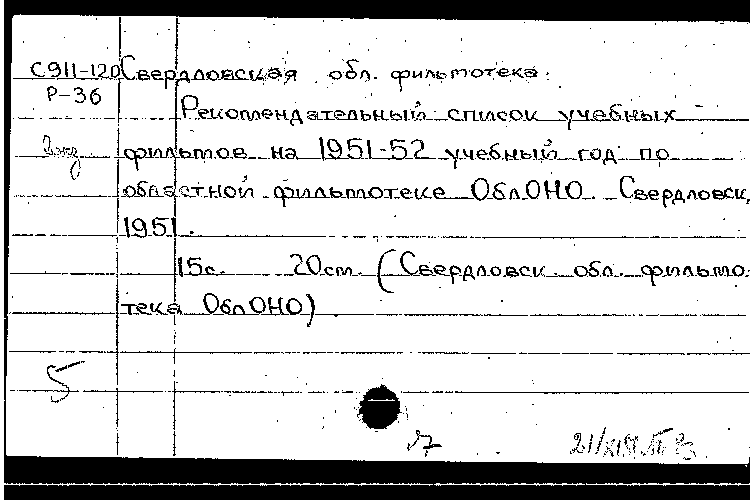 С911-120 Свердловская обл. фильмотека.
Р-36
Рекомендательный список учебных
2 экз фильмов на 1951-52 учебный год по
областной фильмотеке ОблОНО. Свердловск,
1951.
15с. 20см. (Свердловск. обл. фильмо-
тека ОблОНО)
5